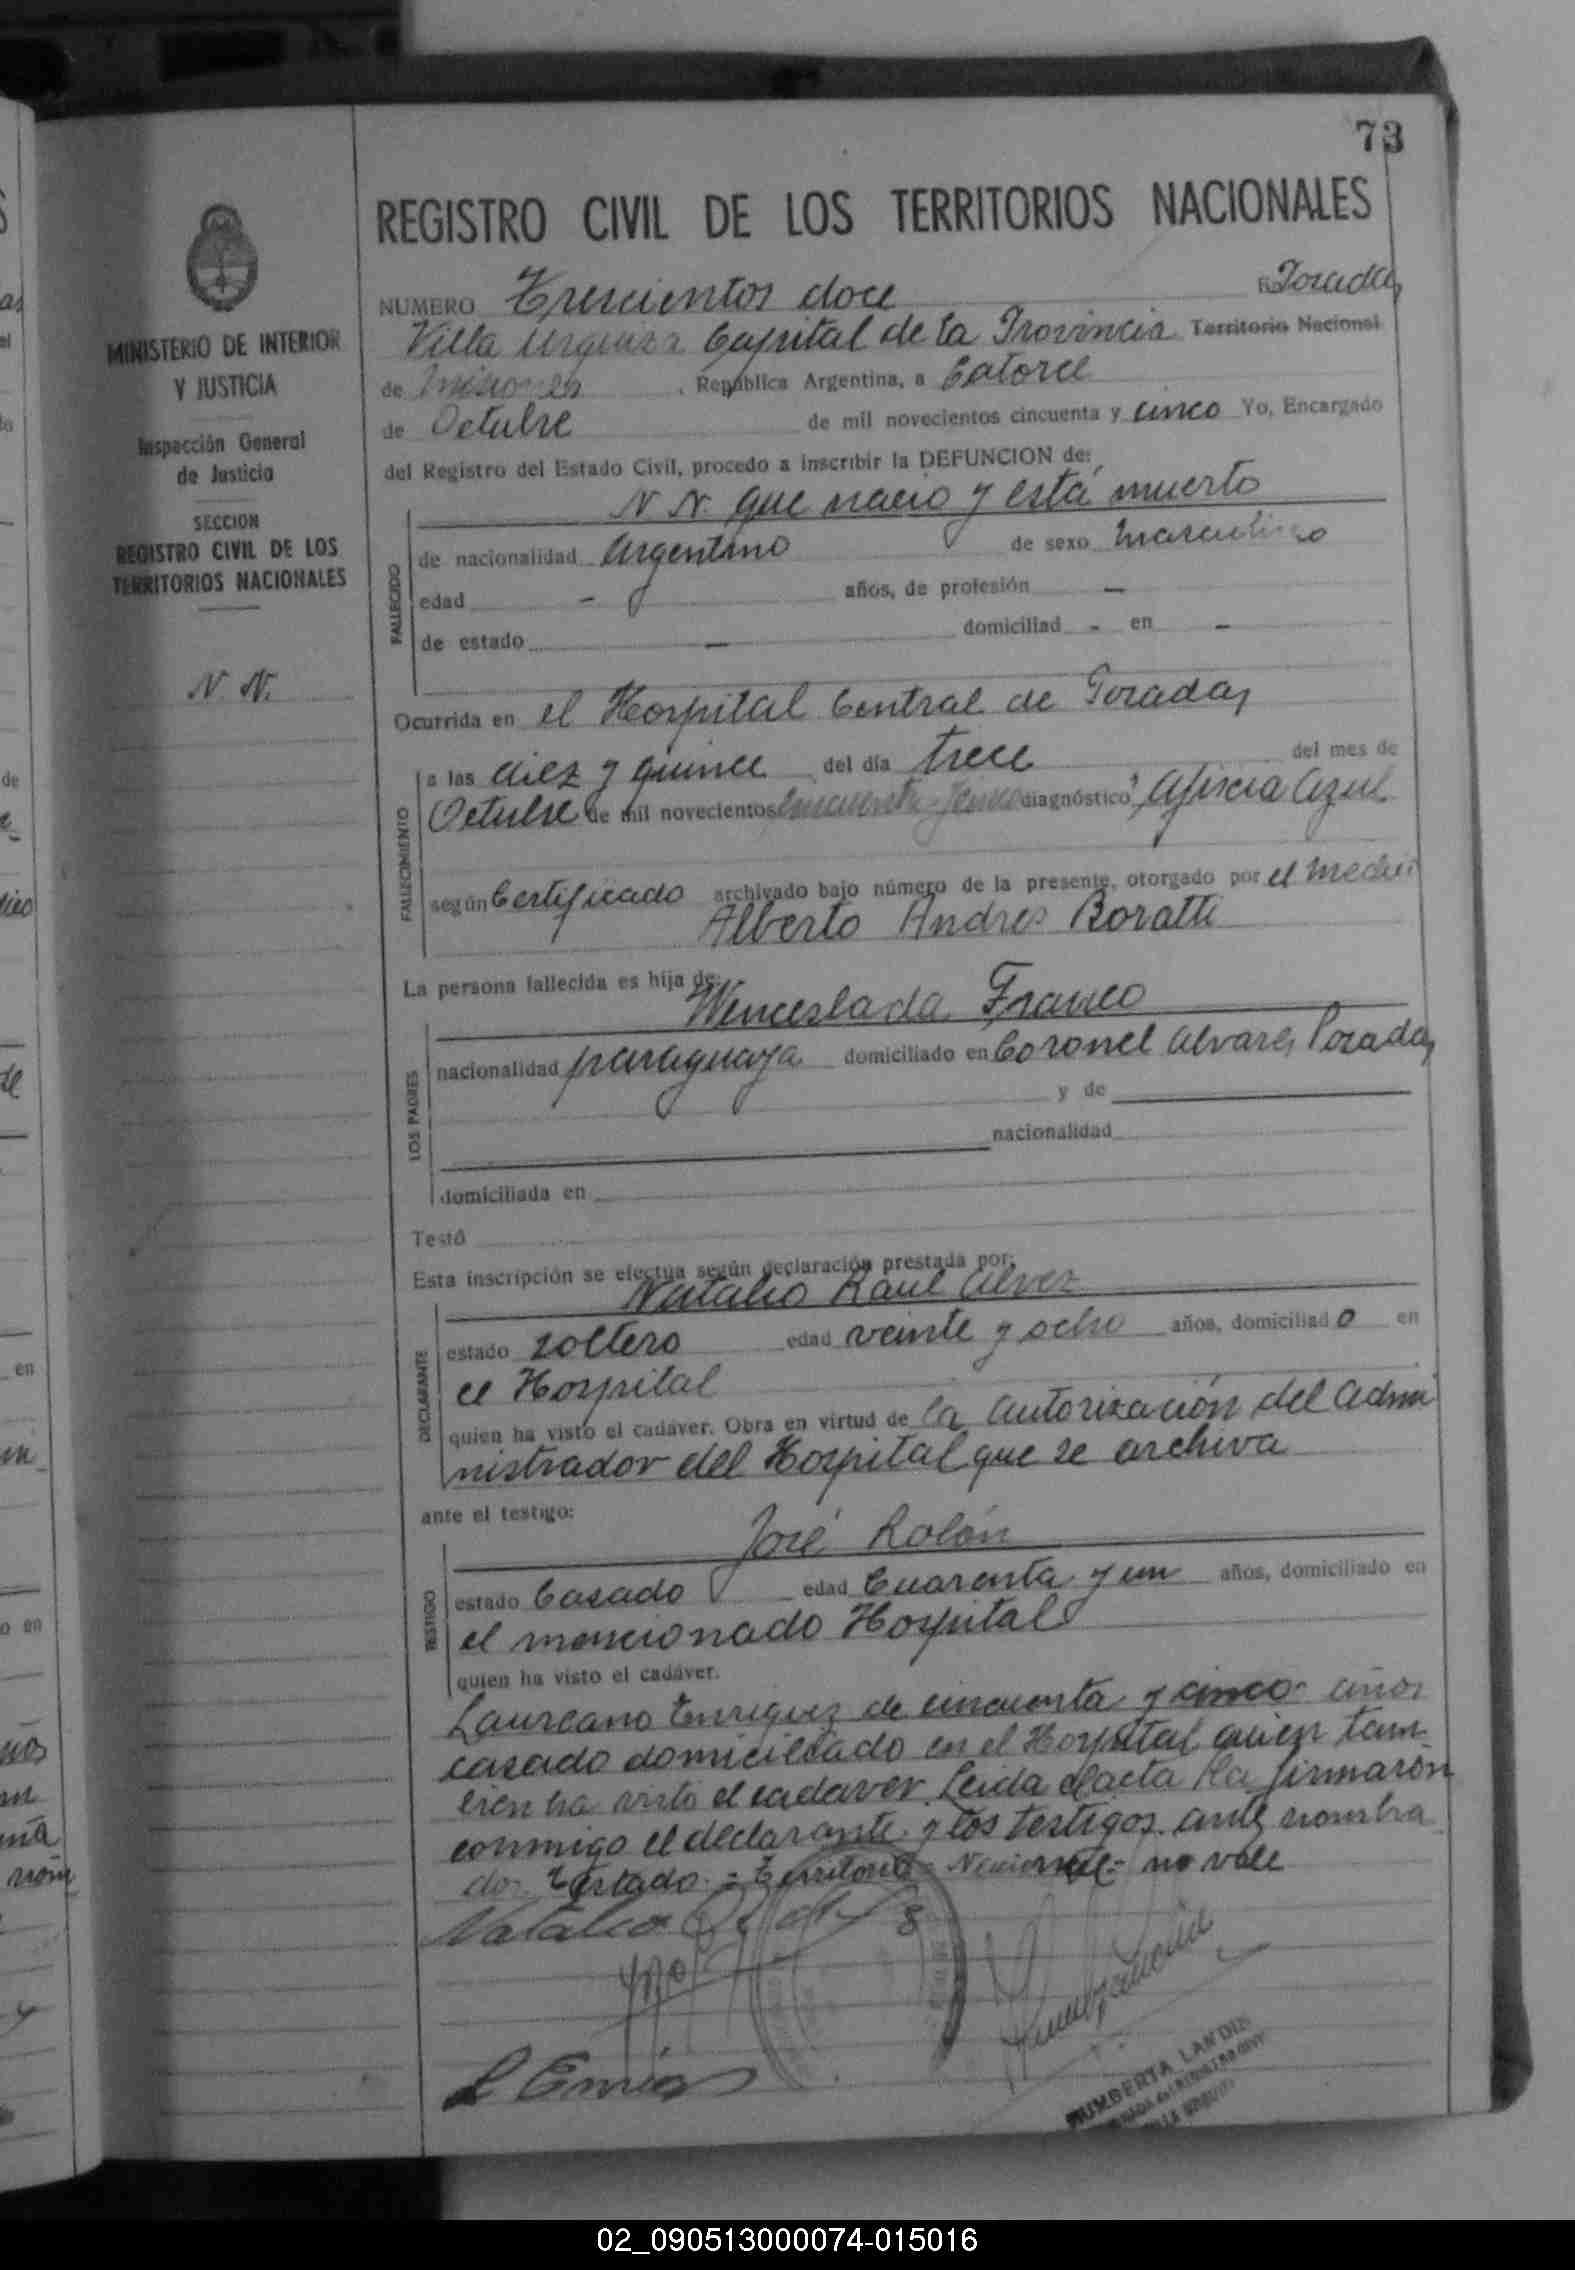 73
REGISTRO CIVIL DE LOS TERRITORIOS NACIONALES
MINISTERIO DE INTERIOR
Y JUSTICIA
Inspección General
de Justicia
SECCION
REGISTRO CIVIL DE LOS
TERRITORIOS NACIONALES
N. N.
NUMERO Trescientos doce En Posadas
Villa Urquiza Capital de la Provincia Territorio Nacional
de Misiones, República Argentina, a Catorce
de Octubre de mil novecientos cincuenta y cinco Yo, Encargado
del Registro del Estado Civil, procedo a inscribir la DEFUNCION de:
N N. que nacio y está muerto
FALLECIDO
de nacionalidad Argentino de sexo masculino
edad - años, de profesión -
de estado - domiciliad - en -
Ocurrida en el Hospital Central de Posadas
FALLECIMIENTO
a las diez y quince del día trece del mes de
Octubre de mil novecientos cincuenta y cinco diagnóstico, Afixia Azul
según Certificado archivado bajo número de la presente, otorgado por el medico
Alberto Andres Boratti
La persona fallecida es hija de:
Wenceslada Franco
LOS PADRES
nacionalidad paraguaya domiciliado en Coronel Alvarez Posadas
y de
nacionalidad
domiciliada en
Testó
Esta inscripción se efectúa según declaración prestada por:
Natalio Raul Alvez
DECLARANTE
estado soltero edad veinte y ocho años, domiciliado en
el Hospital
quien ha visto el cadáver. Obra en virtud de la autorización del Admi
nistrador del Hospital que se archiva
ante el testigo:
José Rolón
TESTIGO
estado Casado edad Cuarenta y un años, domiciliado en
el mencionado Hospital
quien ha visto el cadáver.
Laureano Enriquez de cincuenta y cinco años
casado domiciliado en el Hospital quien tam
bien ha visto el cadaver. Leida el acta la firmaron
conmigo el declarante y los testigos antes nombra
dos Testado = Territorio = Nacional = no vale
Natalio
HUMBERTA LANDI
02_090513000074-015016